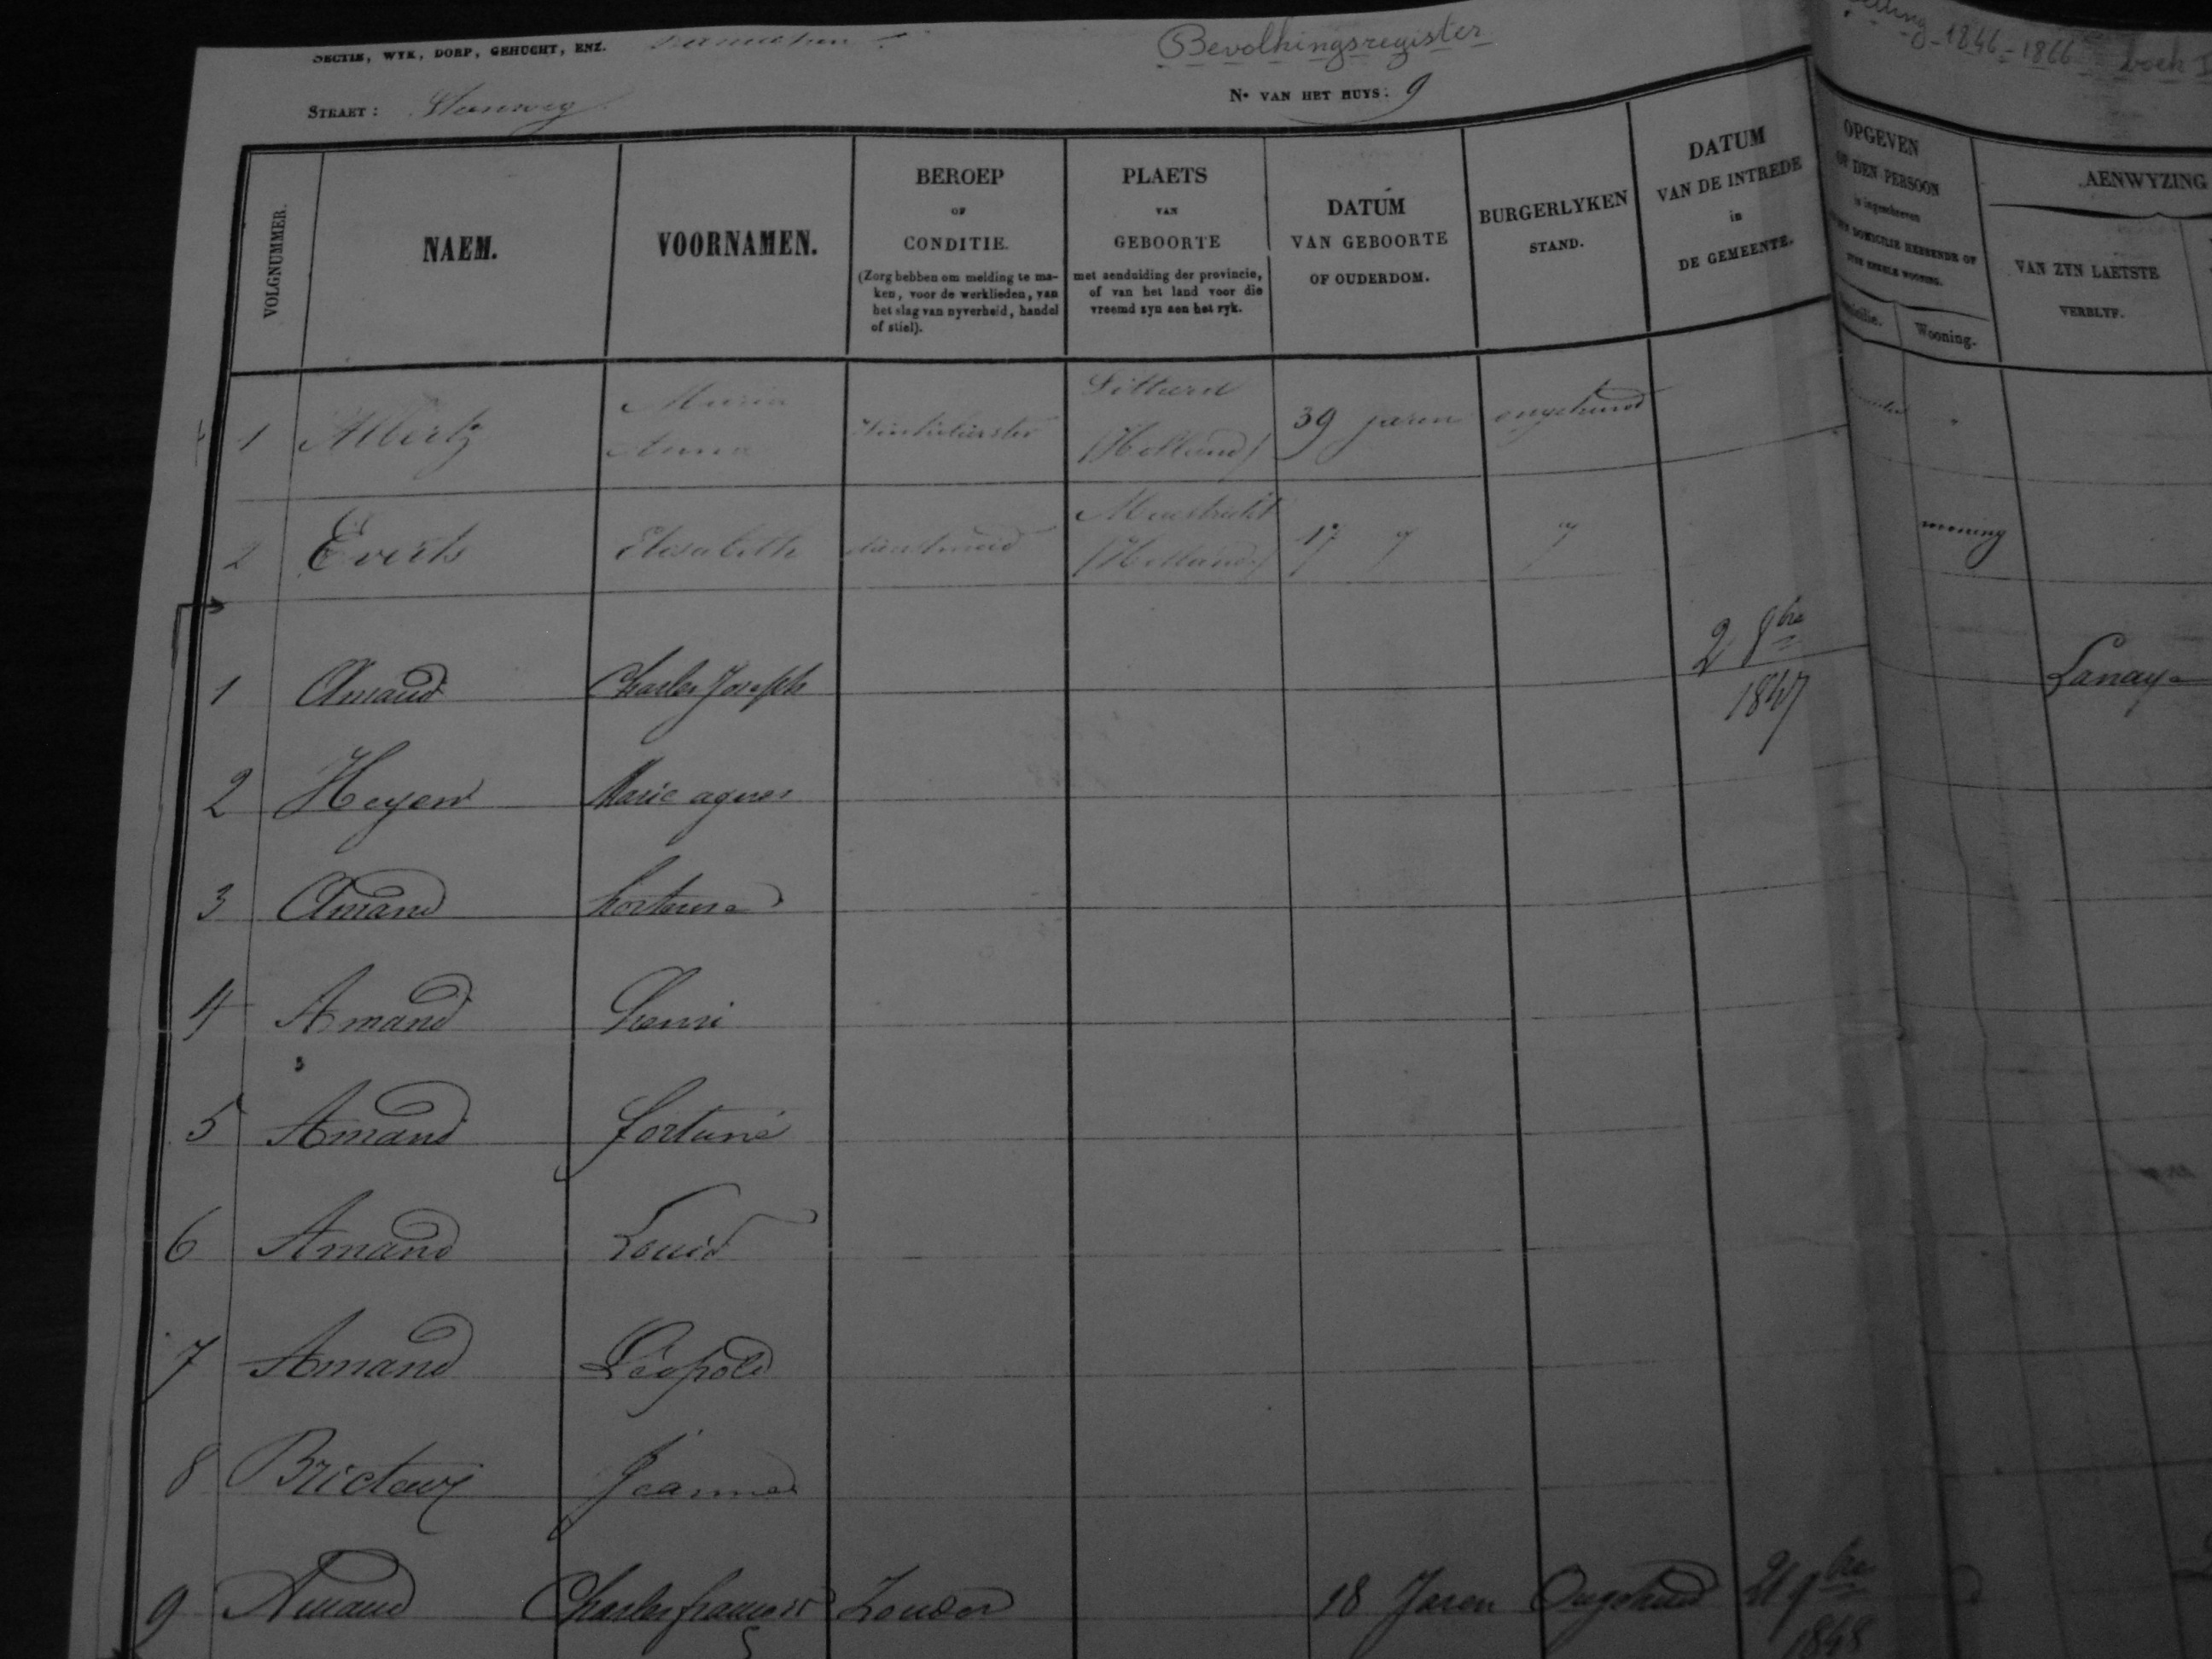 SECTIE, WYK, DORP, GEHUCHT, ENZ.
Bevolkingsregister
1846-1866 boek I
STRAET: Steenweg
No VAN HET HUYS: 9
VOLGNUMMER.
NAEM.
VOORNAMEN.
BEROEP
OF
CONDITIE.
(Zorg hebben om melding te ma-
ken, voor de werklieden, van
het slag van nyverheid, handel
of stiel).
PLAETS
VAN
GEBOORTE
met aenduiding der provincie,
of van het land voor die
vreemd zyn aen het ryk.
DATUM
VAN GEBOORTE
OF OUDERDOM.
BURGERLYKEN
STAND.
DATUM
VAN DE INTREDE
in
DE GEMEENTE.
OPGEVEN
OF DEN PERSOON
is ingeschreven
DOMICILIE HEBBENDE OF
WOONING.
Wooning.
AENWYZING
VAN ZYN LAETSTE
VERBLYF.
1 Albertz Maria Anna Sittard (Holland) 39 jaren ongehuwd
2 Everts Elisabeth dienstmeid Maestricht (Holland) 17 " "
wooning
1 Amand Charles Joseph 2 8bre 1847 Lanaye
2 Heyen Marie agnes
3 Amand hortense
4 Amand henri
5 Amand fortuné
6 Amand Louis
7 Amand Léopold
8 Bricteux Jeanne
9 Amand Charles francois Zonder 18 Jaren Ongehuwd 21 9bre 1848